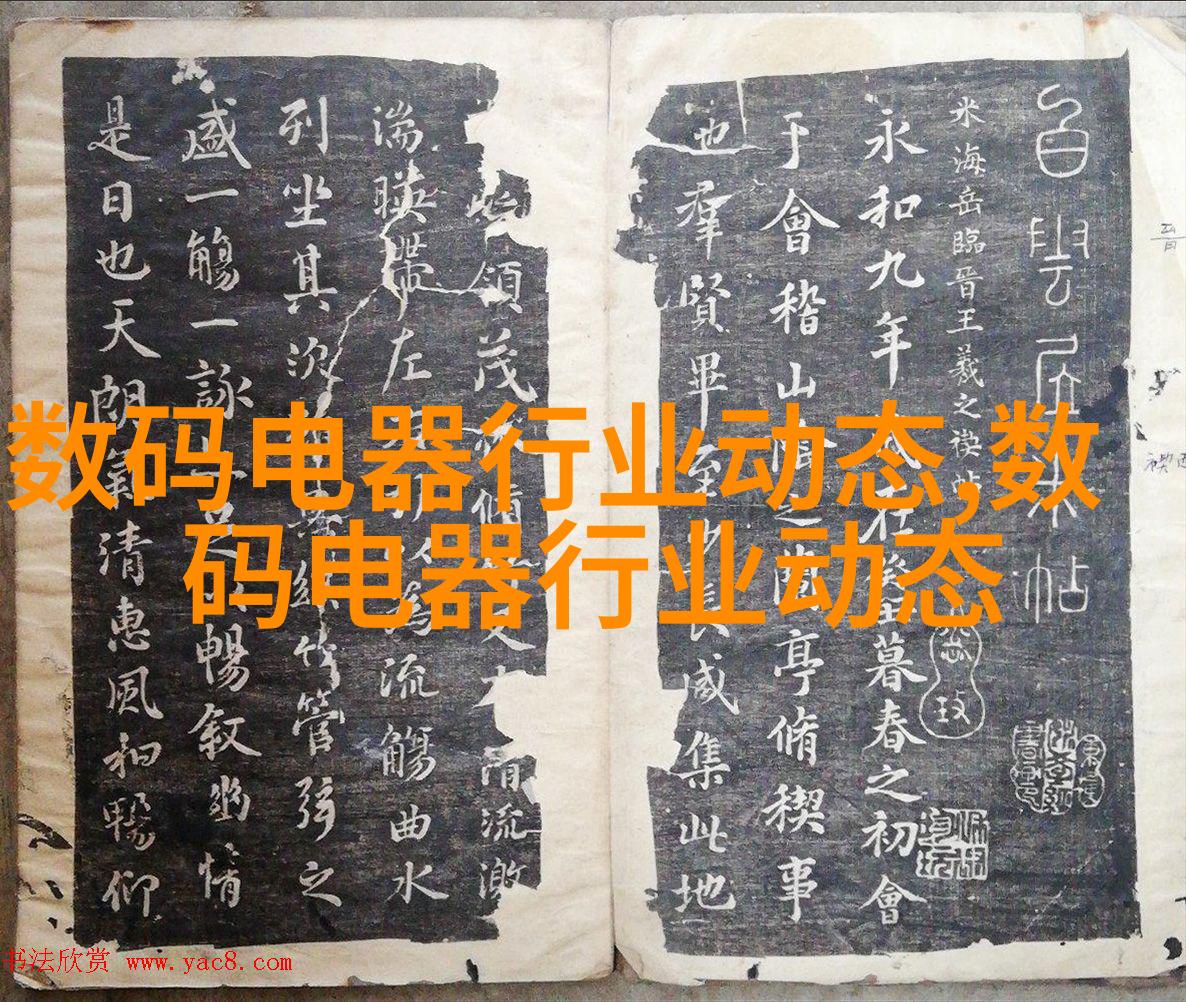 数码电器行业动态,数
码电器行业动态
白雲居米帖
米海岳臨晋王羲之禊帖
永和九年歲在癸丑暮春之初會
于會稽山陰之蘭亭脩稧事
也羣賢畢至少長咸集此地
領茂林脩竹又有清流激
湍暎帶左右引以為流觴曲水
列坐其次雖無絲竹管弦之
盛一觴一詠亦足以暢敘幽情
是日也天朗氣清惠風和暢仰
书法欣赏 www.yac8.com